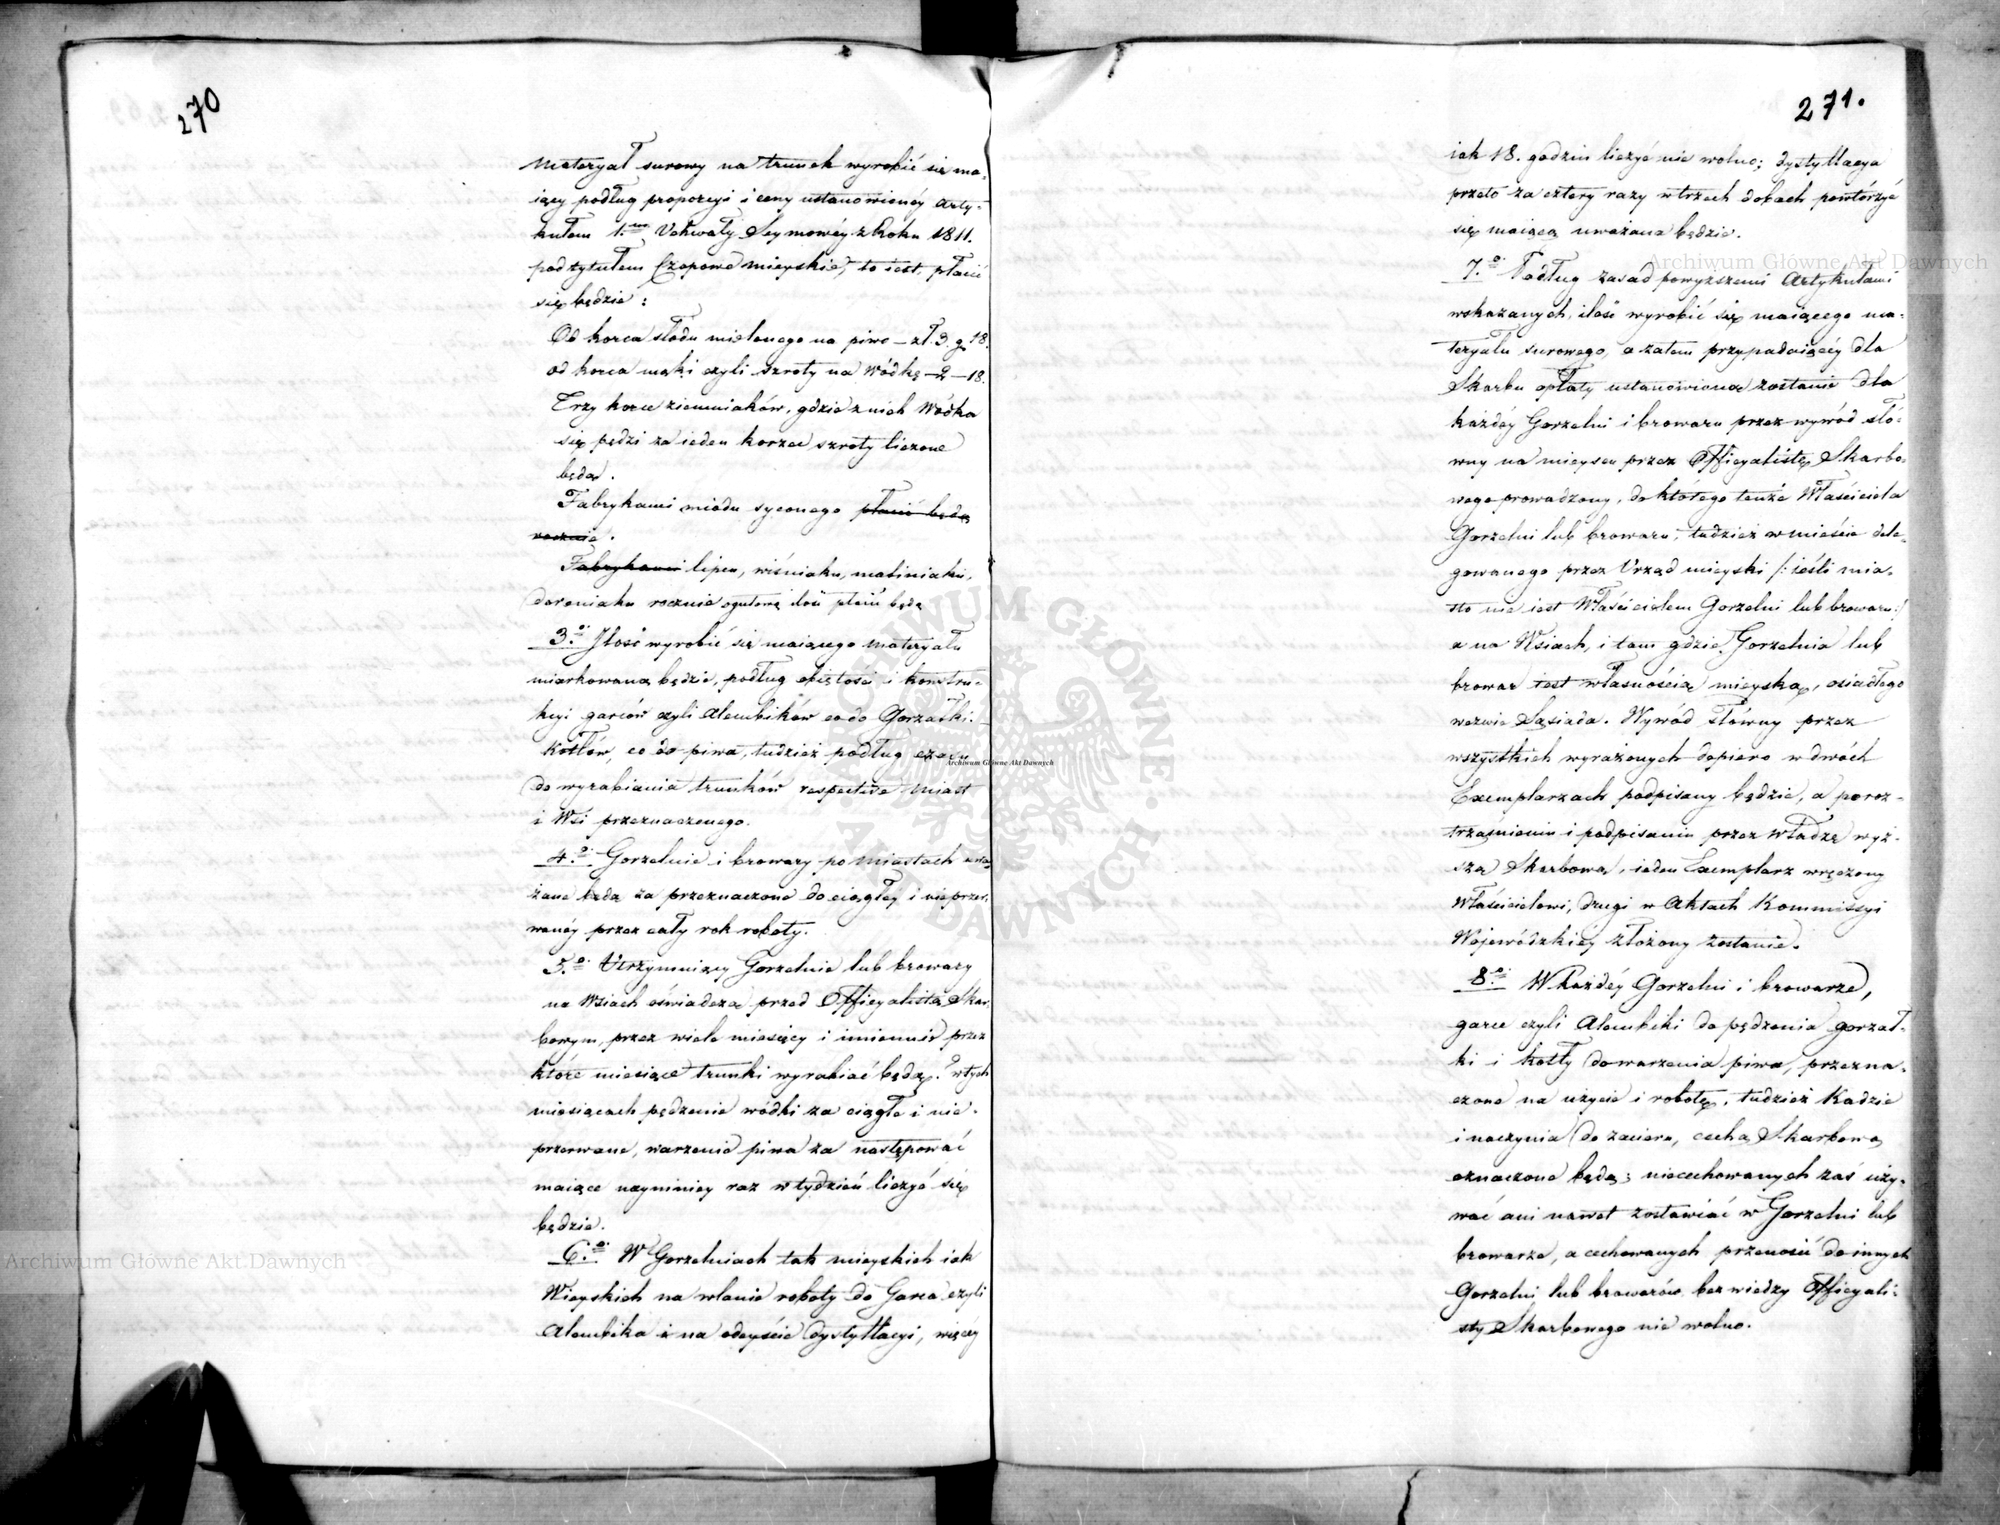 270
Materyał surowy na trunek wyrobić się ma-
iący podług proporcyi i ceny ustanowioney Arty-
kułem 1.m Uchwały Seymowéy z Roku 1811.
pod tytułem Czopowe mieyskie, to iest, płacić
się będzie:
Od korca słodu mielonego na piwo – zł. 3. gr 18.
od korca mąki czyli szroty na Wódkę – 2 – 18.
Trzy korce ziemniaków, gdzie z nich Wódka
się pędzi za ieden korzec szroty liczone
będą.
Fabrykanci miodu syconego płacić będą
rocznie.
Fabrykanci lipcu, wiśniaku, maliniaku,
dereniaku rocznie ogułową ilość płacić będą
3.o Ilość wyrobić się maiącego materyału
miarkowaną będzie, podług obiętości i konstru-
kcyi garców czyli Alembików co do Gorzałki.
Kotłów, co do piwa, tudzież podług czasu
do wyrabiania trunków respective Miast
i Wsi przeznaczonego.
4.o Gorzelnie i browary po Miastach uwa-
żane będą za przeznaczone do ciągłéy i nieprzer-
wanéy przez cały rok roboty.
5.o Utrzymuiący Gorzelnie lub browary
na Wsiach oświadczą przed Officyalistą Skar-
bowym, przez wiele miesięcy i imiennie przez
które miesiące trunki wyrabiać będą. W tych
miesiącach pędzenie wódki za ciągłe i nie-
przerwane, warzenie piwa za następować
maiące naymniey raz w tydzień liczyć się
będzie.
6.o W Gorzelniach tak mieyskich iak
Wieyskich na wlanie roboty do Garca czyli
Alembika i na odeyście dystyllacyi, więcéy
271.
iak 18. godzin liczyć nie wolno; dystyllacya
przeto za cztery razy w trzech dobach powtórzyć
się maiąca uważana będzie.
7.o Podług zasad powyższemi Artykułami
wskazanych, ilość wyrobić się maiącego ma-
teryału surowego, a zatem przypadaiącéy dla
Skarbu opłaty ustanowiona zostanie dla
każdéy Gorzelni i browaru przez wywód słó-
wny na mieyscu przez Officyalistę Skarbo-
wego prowadzony, do którego tenże Właściciela
Gorzelni lub browaru, tudzież w mieście dele-
gowanego przez Urząd mieyski /: ieśli mia-
sto nie iest Właścicielem Gorzelni lub browaru :/
a na Wsiach, i tam gdzie Gorzelnia lub
browar iest własnością mieyską, osiadłego
wezwie Sąsiada. Wywód słówny przez
wszystkich wyrażonych dopiero w dwóch
Exemplarzach podpisany będzie, a poroz-
trząśnieniu i podpisaniu przez Władzę wyż-
szą Skarbową, ieden Exemplarz wręczony
Właścicielowi, drugi w Aktach Kommissyi
Wojewódzkiéy złożony zostanie.
8.o W Każdéy Gorzelni i browarze,
garce czyli Alembiki do pędzenia gorzał-
ki i kotły do warzenia piwa, przezna-
czone na użycie i robotę, tudzież Kadzie
i naczynia do zacieru, cechą Skarbową
oznaczone będą; niecechowanych zaś uży-
wać ani nawet zostawiać w Gorzelni lub
browarze, a cechowanych przenosić do innych
Gorzelni lub browarów bez wiedzy Officyali-
sty Skarbowego nie wolno.
Archiwum Główne Akt Dawnych
Archiwum Główne Akt Dawnych
Archiwum Główne Akt Dawnych
ARCHIWUM GŁÓWNE · AKT DAWNYCH ·